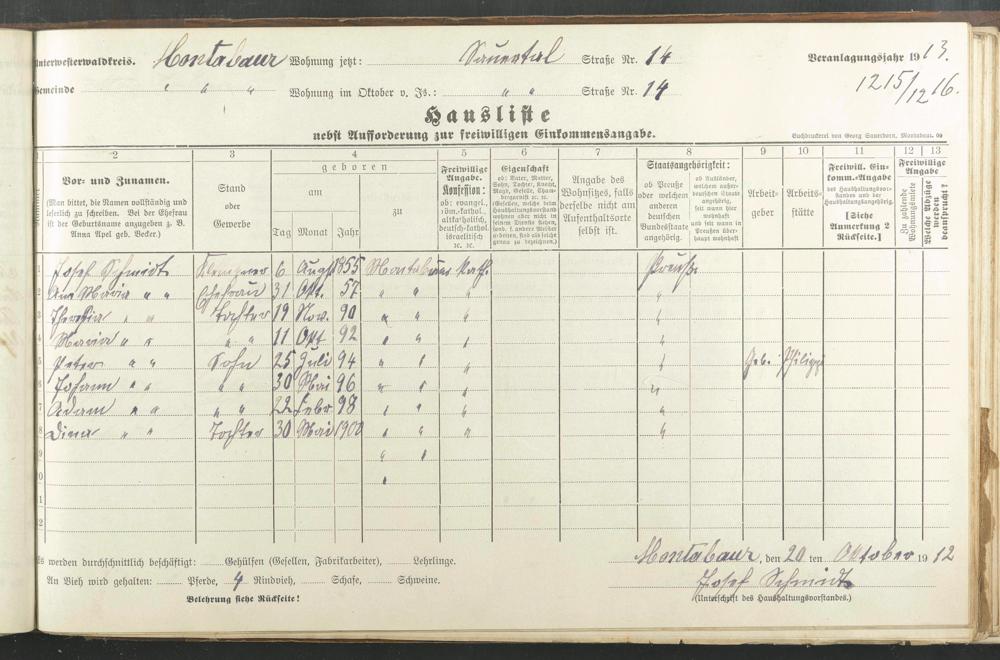 Unterwesterwaldkreis. Montabaur Wohnung jetzt: Sauertal Straße Nr. 14 Veranlagungsjahr 1913.
Gemeinde " " " Wohnung im Oktober v. Js.: " " Straße Nr. 14 1215/1216.
Hausliste
nebst Aufforderung zur freiwilligen Einkommensangabe.
Buchdruckerei von Georg Sauerborn, Montabaur.
1 2 3 4 5 6 7 8 9 10 11 12 13
Vor- und Zunamen.
(Man bittet, die Namen vollständig und
leserlich zu schreiben. Bei der Ehefrau
ist der Geburtsname anzugeben z. B.
Anna Apel geb. Becker.)
Stand
oder
Gewerbe
geboren
am
zu
Tag Monat Jahr
Freiwillige
Angabe.
Konfession:
ob: evangel.,
röm.-kathol.,
altkatholisch,
deutsch-kathol.
israelitisch
ꝛc. ꝛc.
Eigenschaft
ob: Vater, Mutter,
Sohn, Tochter, Knecht,
Magd, Geselle, Cham-
bergarnist ꝛc. ꝛc.
Angabe des
Wohnsitzes, falls
derselbe nicht am
Aufenthaltsorte
selbst ist.
Staatsangehörigkeit:
ob Preuße
oder welchem
anderen
deutschen
Bundesstaate
angehörig.
ob Ausländer,
welchem außer-
deutschen Staate
angehörig,
seit wann hier
wohnhaft
und seit wann in
Preußen über-
haupt wohnhaft
Arbeit-
geber
Arbeits-
stätte
Freiwill. Ein-
komm.-Angabe
des Haushaltungsvor-
standes und der
Haushaltungsangehörig.
[Siehe
Anmerkung 2
Rückseite.]
Freiwillige
Angabe
Zu zahlende
Wohnungsmiete
Welche Abzüge
werden
beansprucht?
1 Josef Schmidt Klempner 6 August 1855 Montabaur Kath. Preuße
2 Ann Maria " " Ehefrau 31 Okt. 57 " " " "
3 Theresia " " Tochter 19 Nov. 90 " " " "
4 Maria " " " " 11 Okt 92 " " " "
5 Peter " " Sohn 25 Juli 94 " " " " Gebr. Philippi
6 Johann " " " " 30 Mai 96 " " " "
7 Adam " " " " 22 Febr 98 " " " "
8 Dina " " Tochter 30 Mai 1900 " " " "
9 " "
0 "
1
2
Es werden durchschnittlich beschäftigt: Gehülfen (Gesellen, Fabrikarbeiter), Lehrlinge.
Montabaur, den 20 ten Oktober 1912
An Vieh wird gehalten: Pferde, 4 Rindvieh, Schafe, Schweine.
Josef Schmidt
Belehrung siehe Rückseite!
(Unterschrift des Haushaltungsvorstandes.)